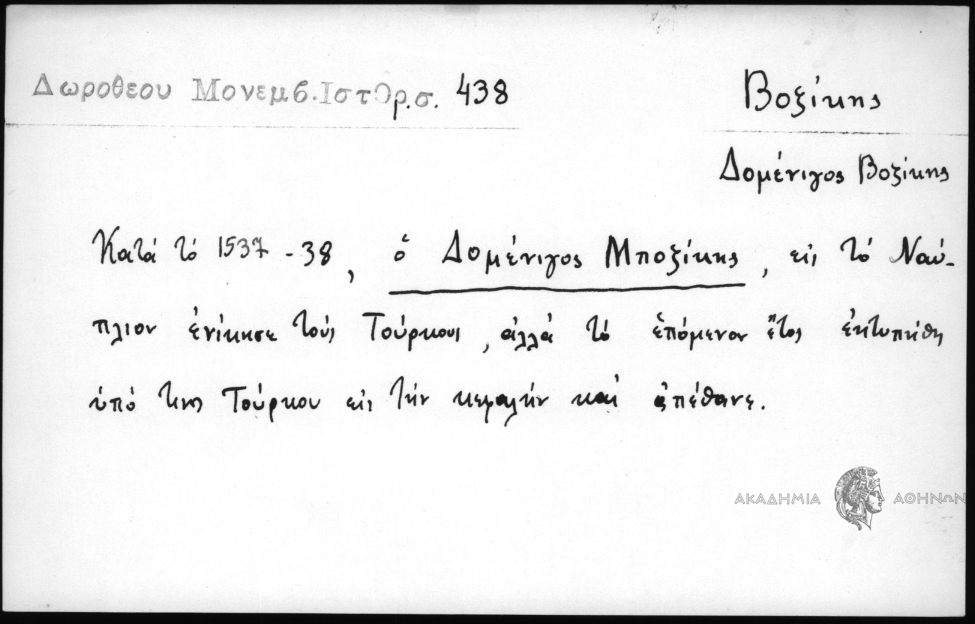 Δωροθεου Μονεμβ.Ιστορ.σ. 438
Βοξίκης
Δομένιγος Βοξίκης
Κατά τό 1537-38, ὁ Δομένιγος Μποξίκης, εἰς τό Ναύ-
πλιον ἐνίκησε τούς Τούρκους, ἀλλά τό ἑπόμενον ἔτος ἐκτυπήθη
ὑπό τινος Τούρκου εἰς τήν κεφαλήν καί ἀπέθανε.
ΑΚΑΔΗΜΙΑ ΑΘΗΝΩΝ